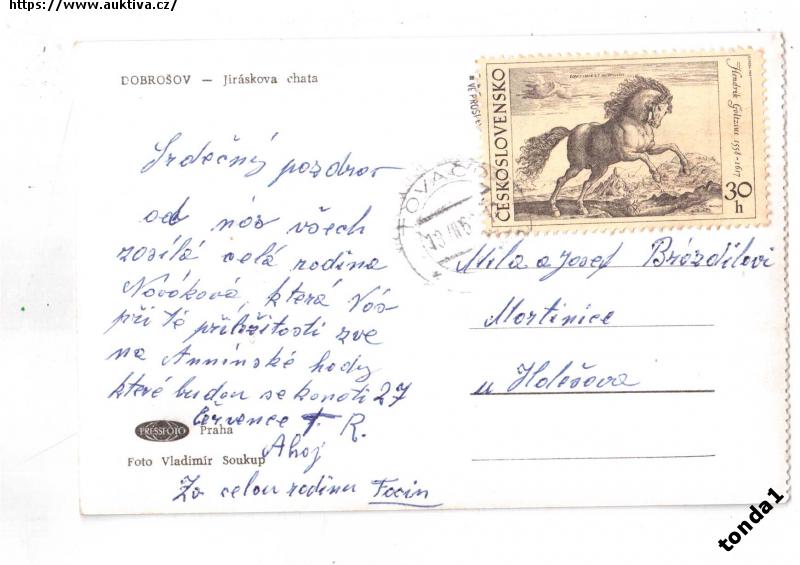 https://www.auktiva.cz/
DOBROŠOV — Jiráskova chata
Srdečný pozdrav
od nás všech
zosílá celá rodina
Nováková, která Vás
při té příležitosti zve
na Anninské hody
které budou se konati 27
července T. R.
Ahoj
Za celou rodinu
PRESSFOTO Praha
Foto Vladimír Soukup
ČESKOSLOVENSKO
Hendrik Goltzius 1558-1617
30 h
Mila a Josef Brázdilovi
Martinice
u Holešova
tonda1